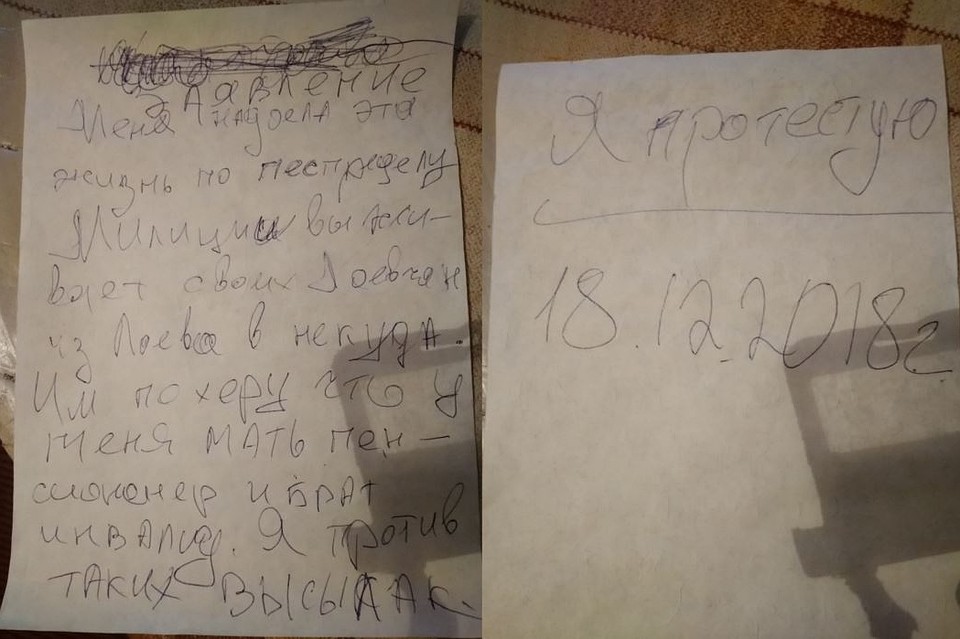 Заявление
Меня надоела эта
жизнь по песпределу
Милиции выжи-
вает своих Лоевчан
из Лоева в некуда.
Им похеру что у
меня мать пен-
сионенер и брат
инвалид. Я против
таких высылак.
Я протестую
18.12.2018г